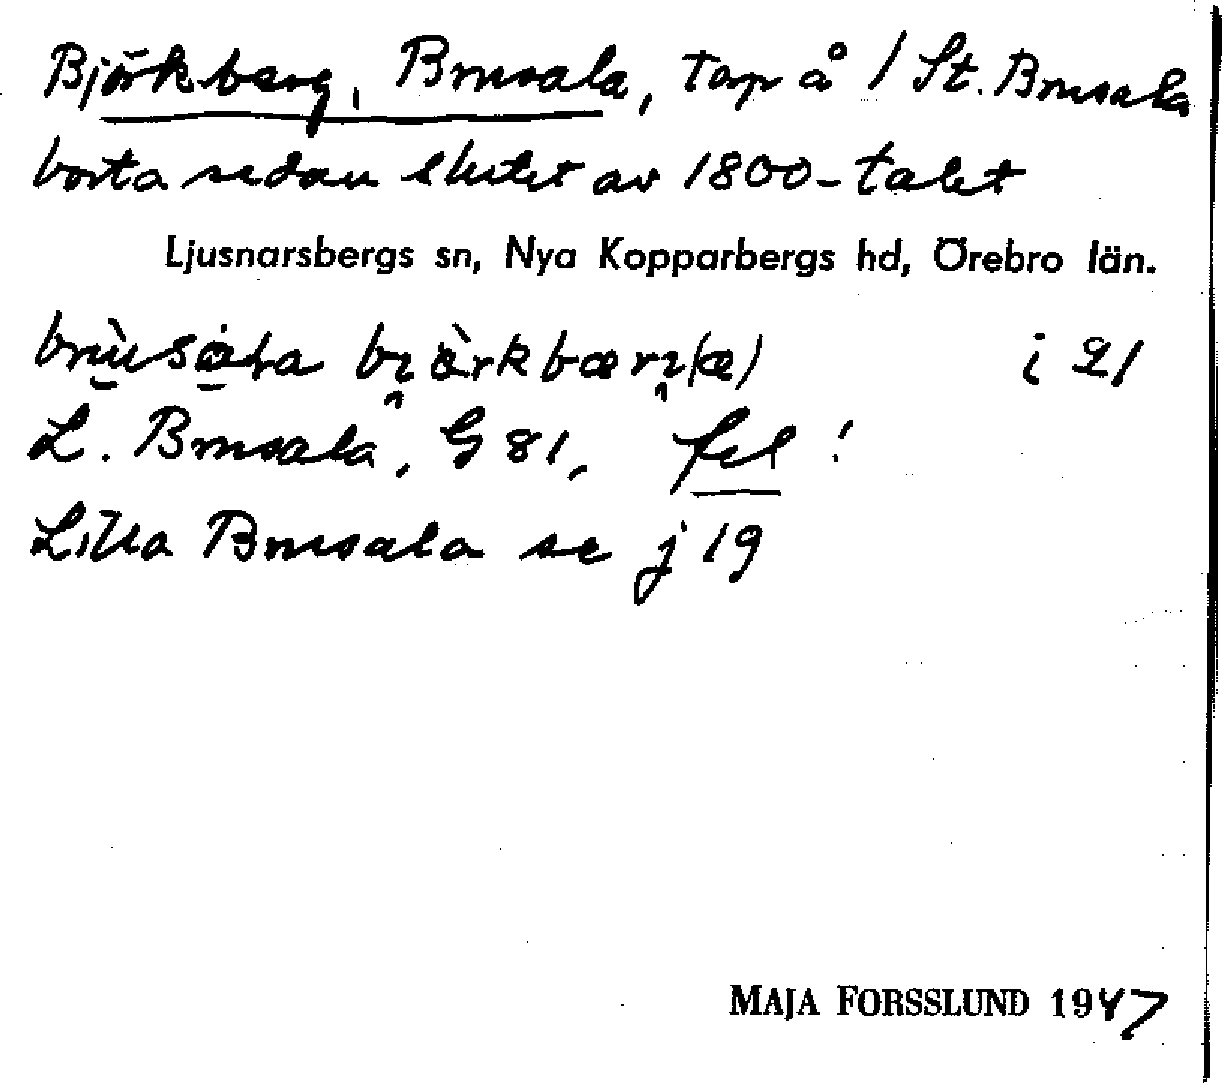 Björkberg, Brusala, torp å 1 St. Brusala
borta sedan slutet av 1800-talet
Ljusnarsbergs sn, Nya Kopparbergs hd, Örebro län.
i 21
L. Brusala, G 81, fel!
Lilla Brusala se j 19
MAJA FORSSLUND 1947